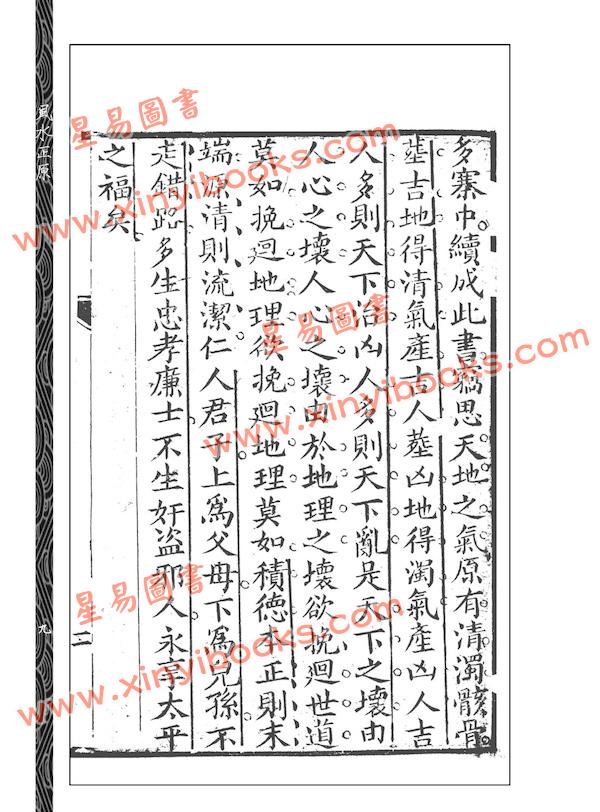 風水正原
九
多寨中續成此書竊思天地之氣原有清濁骸骨
塟吉地得清氣產吉人塟凶地得濁氣產凶人吉
人多則天下治凶人多則天下亂是天下之壞由
人心之壞人心之壞由於地理之壞欲挽迴世道
莫如挽迴地理欲挽迴地理莫如積德本正則末
端源清則流潔仁人君子上爲父母下爲兒孫不
走錯路多生忠孝廉士不生奸盗邪人永享太平
之福矣
二
星易圖書
www.xinyibooks.com
星易圖書
www.xinyibooks.com
星易圖書
www.xinyibooks.com